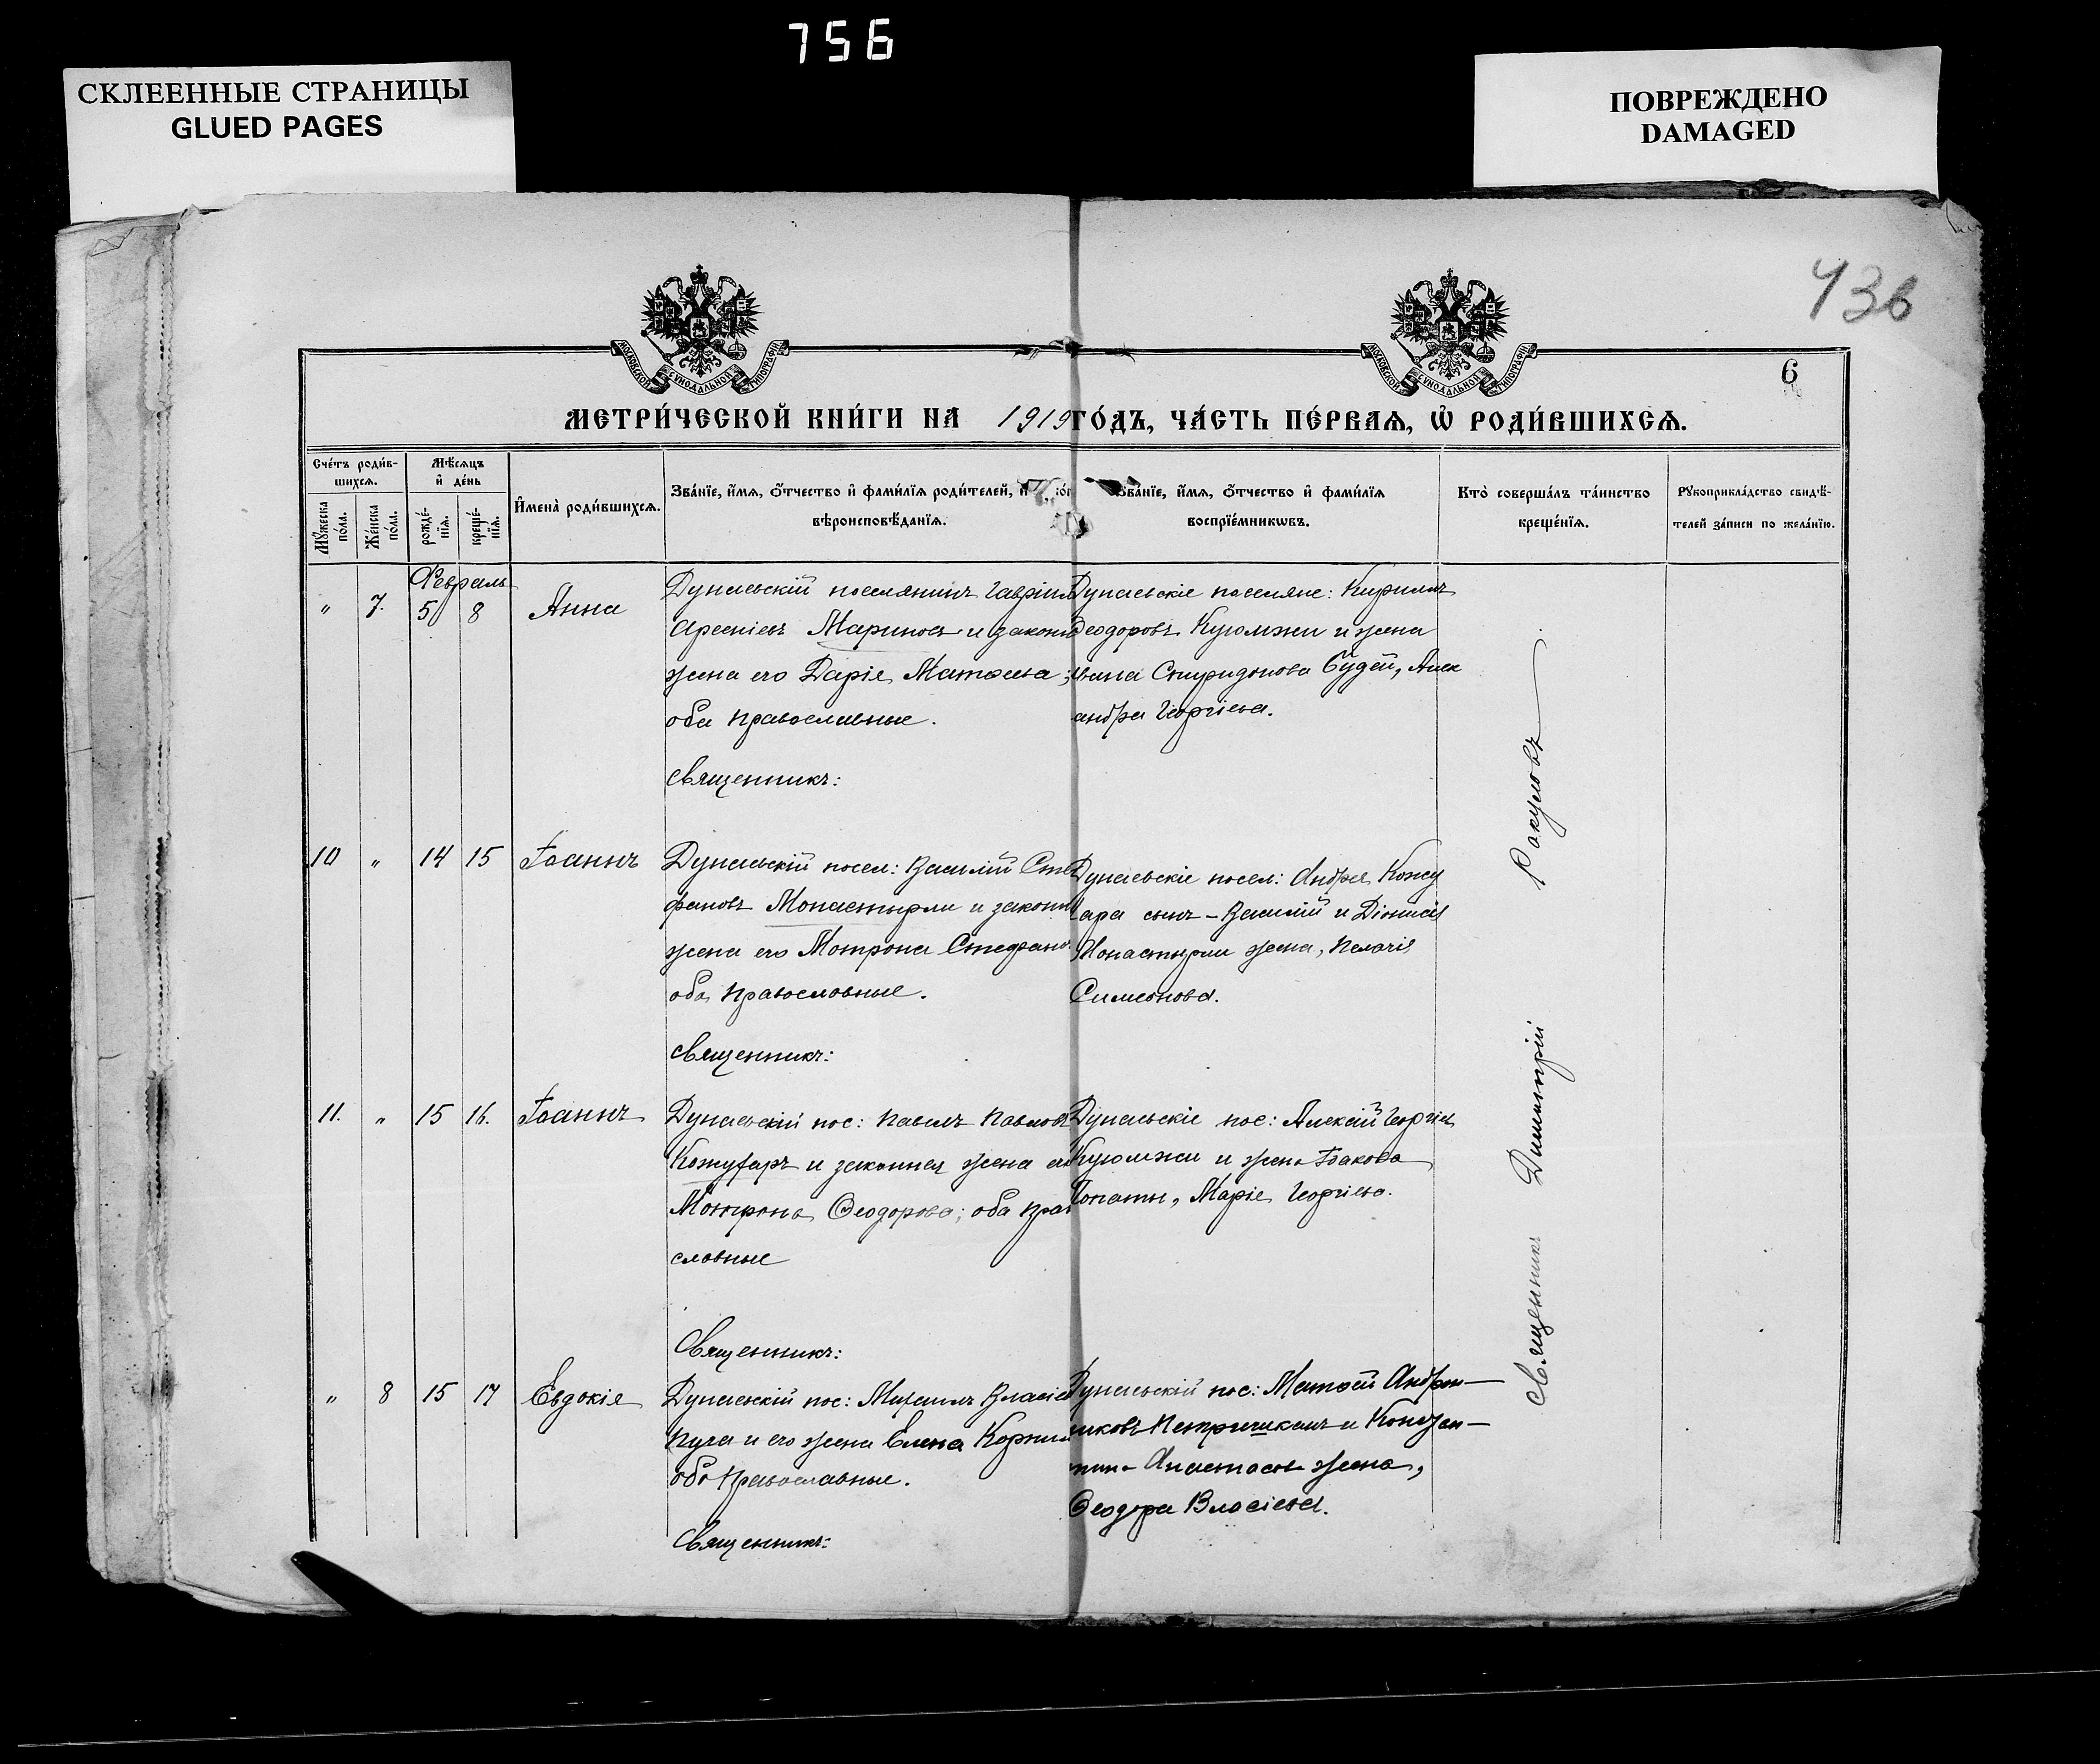 756
СКЛЕЕННЫЕ СТРАНИЦЫ
GLUED PAGES
ПОВРЕЖДЕНО
DAMAGED
436
МОСКОВСКОЙ СѴНОДАЛЬНОЙ ТИПОГРАФІИ
МОСКОВСКОЙ СѴНОДАЛЬНОЙ ТИПОГРАФІИ
6
МЕТРИ́ЧЕСКОЙ КНИ́ГИ НА 1919 ГО́ДЪ, ЧА́СТЬ ПЕ́РВАѦ, Ѡ҆ РОДИ́ВШИХСѦ.
Сче́тъ роди́в-
шихсѧ.
Мѣ́сѧцъ
и҆ де́нь
Мꙋ́жеска
по́ла.
Же́нска
по́ла.
рожде́-
нїѧ.
креще́-
нїѧ.
И҆мена̀ роди́вшихсѧ.
Зва́нїе, и҆́мѧ, ѻ҆́тчество и҆ фами́лїѧ роди́телей, и҆
вѣроисповѣ́данїѧ.
Зва́нїе, и҆́мѧ, ѻ҆́тчество и҆ фами́лїѧ
воспрїе́мникѡвъ.
Кто̀ соверша́лъ та́инство
креще́нїѧ.
Рꙋкоприкла́дство свидѣ́-
телей за́писи по жела́нїю.
Февраль
" 7. 5 8 Анна
Дунаевскій поселянинъ Гавріил
Арсеніевъ Мариновъ и закон
жена его Дарія Матѳеева;
оба православные.
Священникъ:
Дунаевскіе поселяне: Кириллъ
Ѳеодоровъ Куюмжи и жена
Спиридонова Будей, Алек
андра Георгіева.
10 " 14 15 Іоаннъ
Дунаевскій посел: Василій Сте
фановъ Монастырли и законн
жена его Мотрона Стефано
оба православные.
Священникъ:
Дунаевскіе посел: Андрея Кожу
аря сынъ - Василій и Діонисія
Монастырли жена, Пелагія
Симеонова.
11. " 15 16. Іоаннъ
Дунаевскій пос: Павелъ Павловъ
Кожухарь и законная жена его
Мотрона Ѳеодорова; оба прав
славные
Священникъ:
Дунаевскіе пос: Алексій Георгіев
Куюмжи и жена Іакова
Лопаты, Марія Георгіева.
" 8 15 17 Евдокія
Дунаевскій пос: Михаилъ Власіев
Пуга и его жена Елена Корнил
оба православные.
Священникъ:
Дунаевскій пос: Матѳей Андрон-
иковъ Петришкан и Констан-
тина Анастасов жена,
Ѳеодора Власіева.
Священникъ Димитрій Ракуловъ